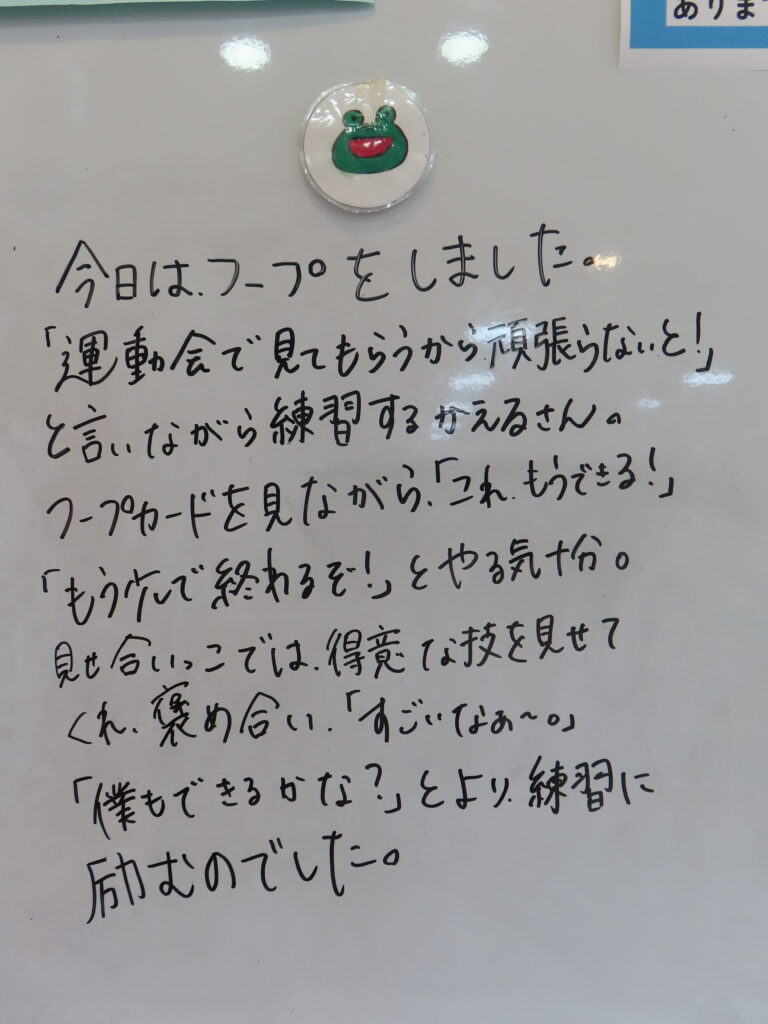 ありま
今日は、フープをしました。
「運動会で見てもらうから、頑張らないと!」
と言いながら練習するかえるさん。
フープカードを見ながら、「これ、もうできる!」
「もう少しで終わるぞ!」とやる気十分。
見せ合いっこでは、得意な技を見せて
くれ、褒め合い、「すごいなぁ〜。」
「僕もできるかな?」とより、練習に
励むのでした。